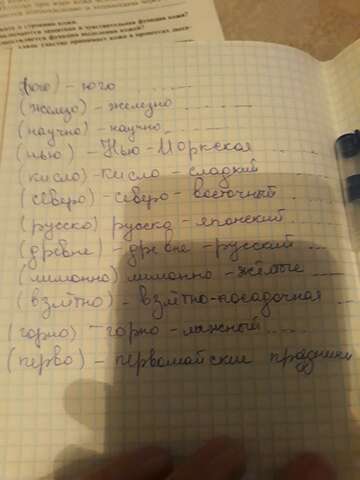 кое о строении кожи.
защитная и чувствительная функция кожи?
функция выделения кожи?
(юго) – юго ......
(железо) – железно ......
(научно) – научно ......
(нью) – Нью-Йоркская ...
(кисло) – кисло – сладкий ......
(северо) – северо – восточный ...
(русско) русско – японский ...
(древне) – древне – русский ...
(лимонно) лимонно – жёлтые ......
(взлётно) – взлётно-посадочная ...
(горно) – горно – лыжный ......
(перво) – первомайские праздники